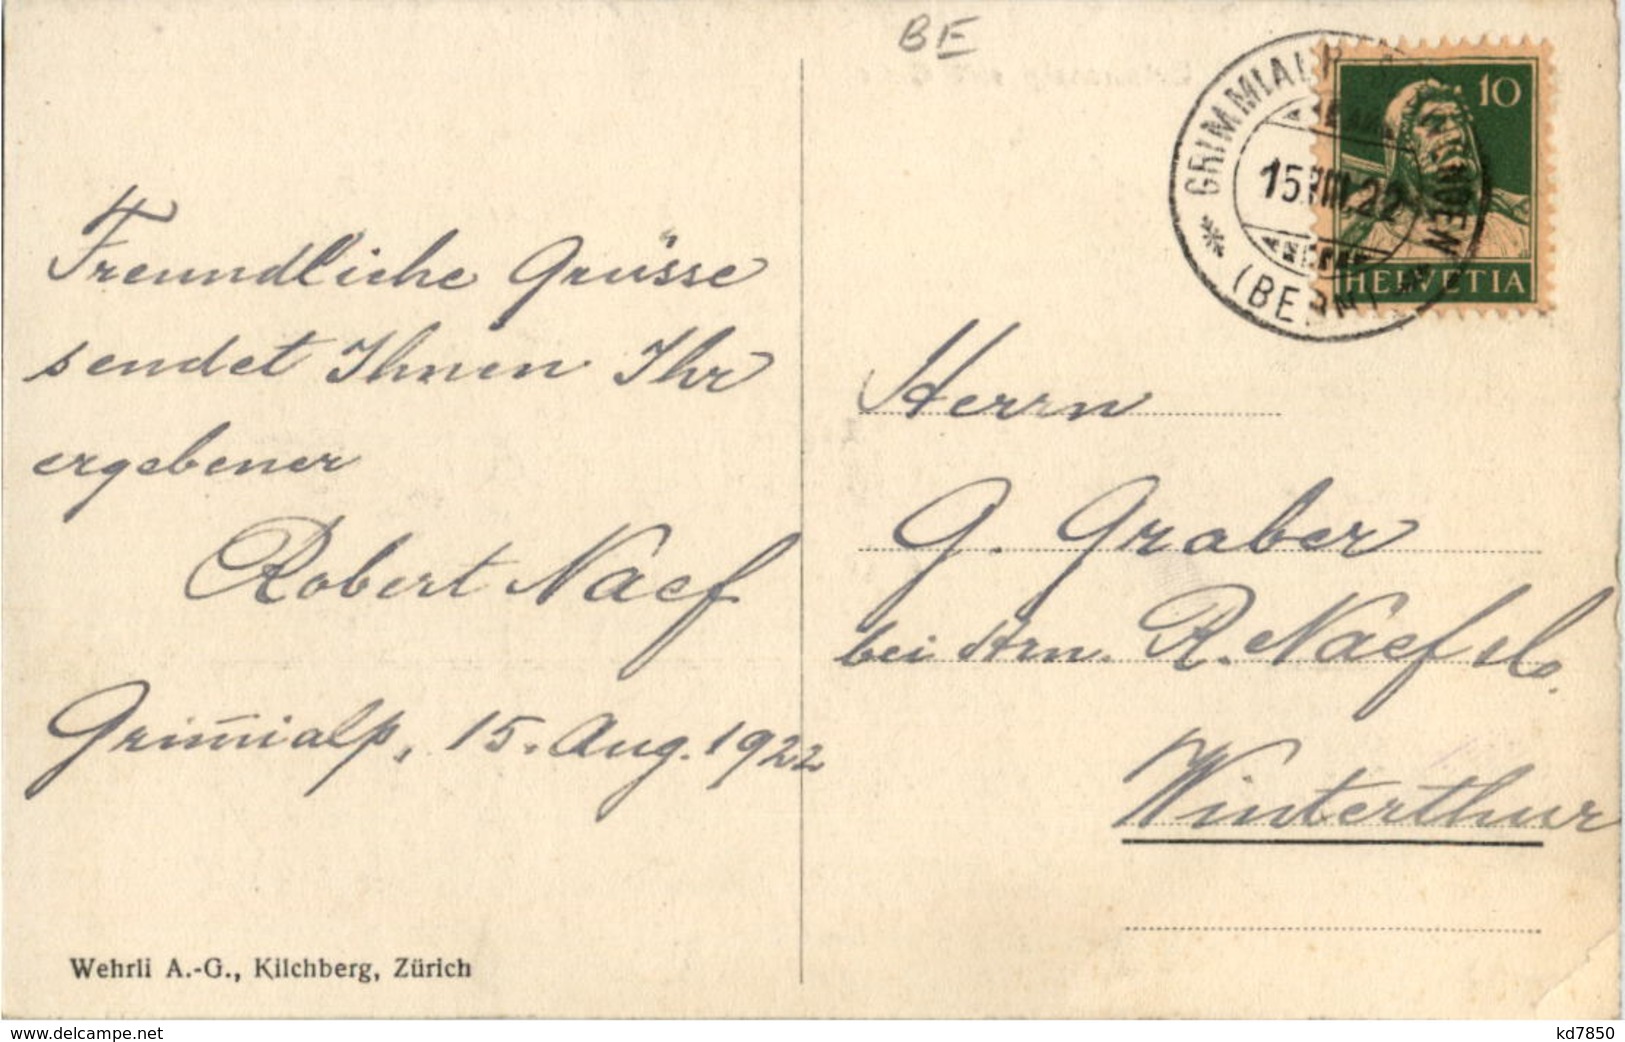 BE
GRIMMIALP
15.VIII.22
(BERN)
10
HELVETIA
Freundliche Grüsse
sendet Ihnen Ihr
ergebener
Robert Naef
Grim̄ialp, 15. Aug. 1922
Herrn
G. Graber
bei Hrn. R. Naef
Winterthur
Wehrli A.-G., Kilchberg, Zürich
www.delcampe.net
kd7850